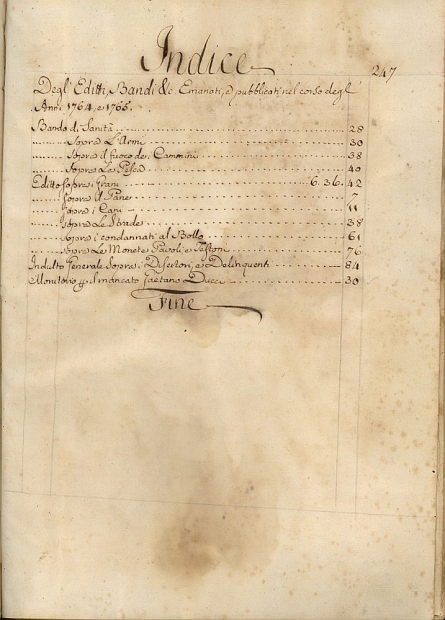 Indice
247
Degl' Editti, Bandi &c. Emanati, e pubblicati nel corso degl'
Anni 1764, e 1765.
Bando di Sanità 28
Sopra L'Armi 30
Sopra il fuoco de' Cammini 38
Sopra La Pesca 40
Editto sopra i Grani 6. 36. 42
Sopra il Pane 7
Sopra i Cani 11
Sopra Le Strade 38
Sopra i condannati al Bollo 61
Sopra Le Monete Paoli, e Testoni 76
Indulto Generale sopra i Disertori, e Delinquenti 84
Monitorio il mancato Gaetano Ducci 30
Fine